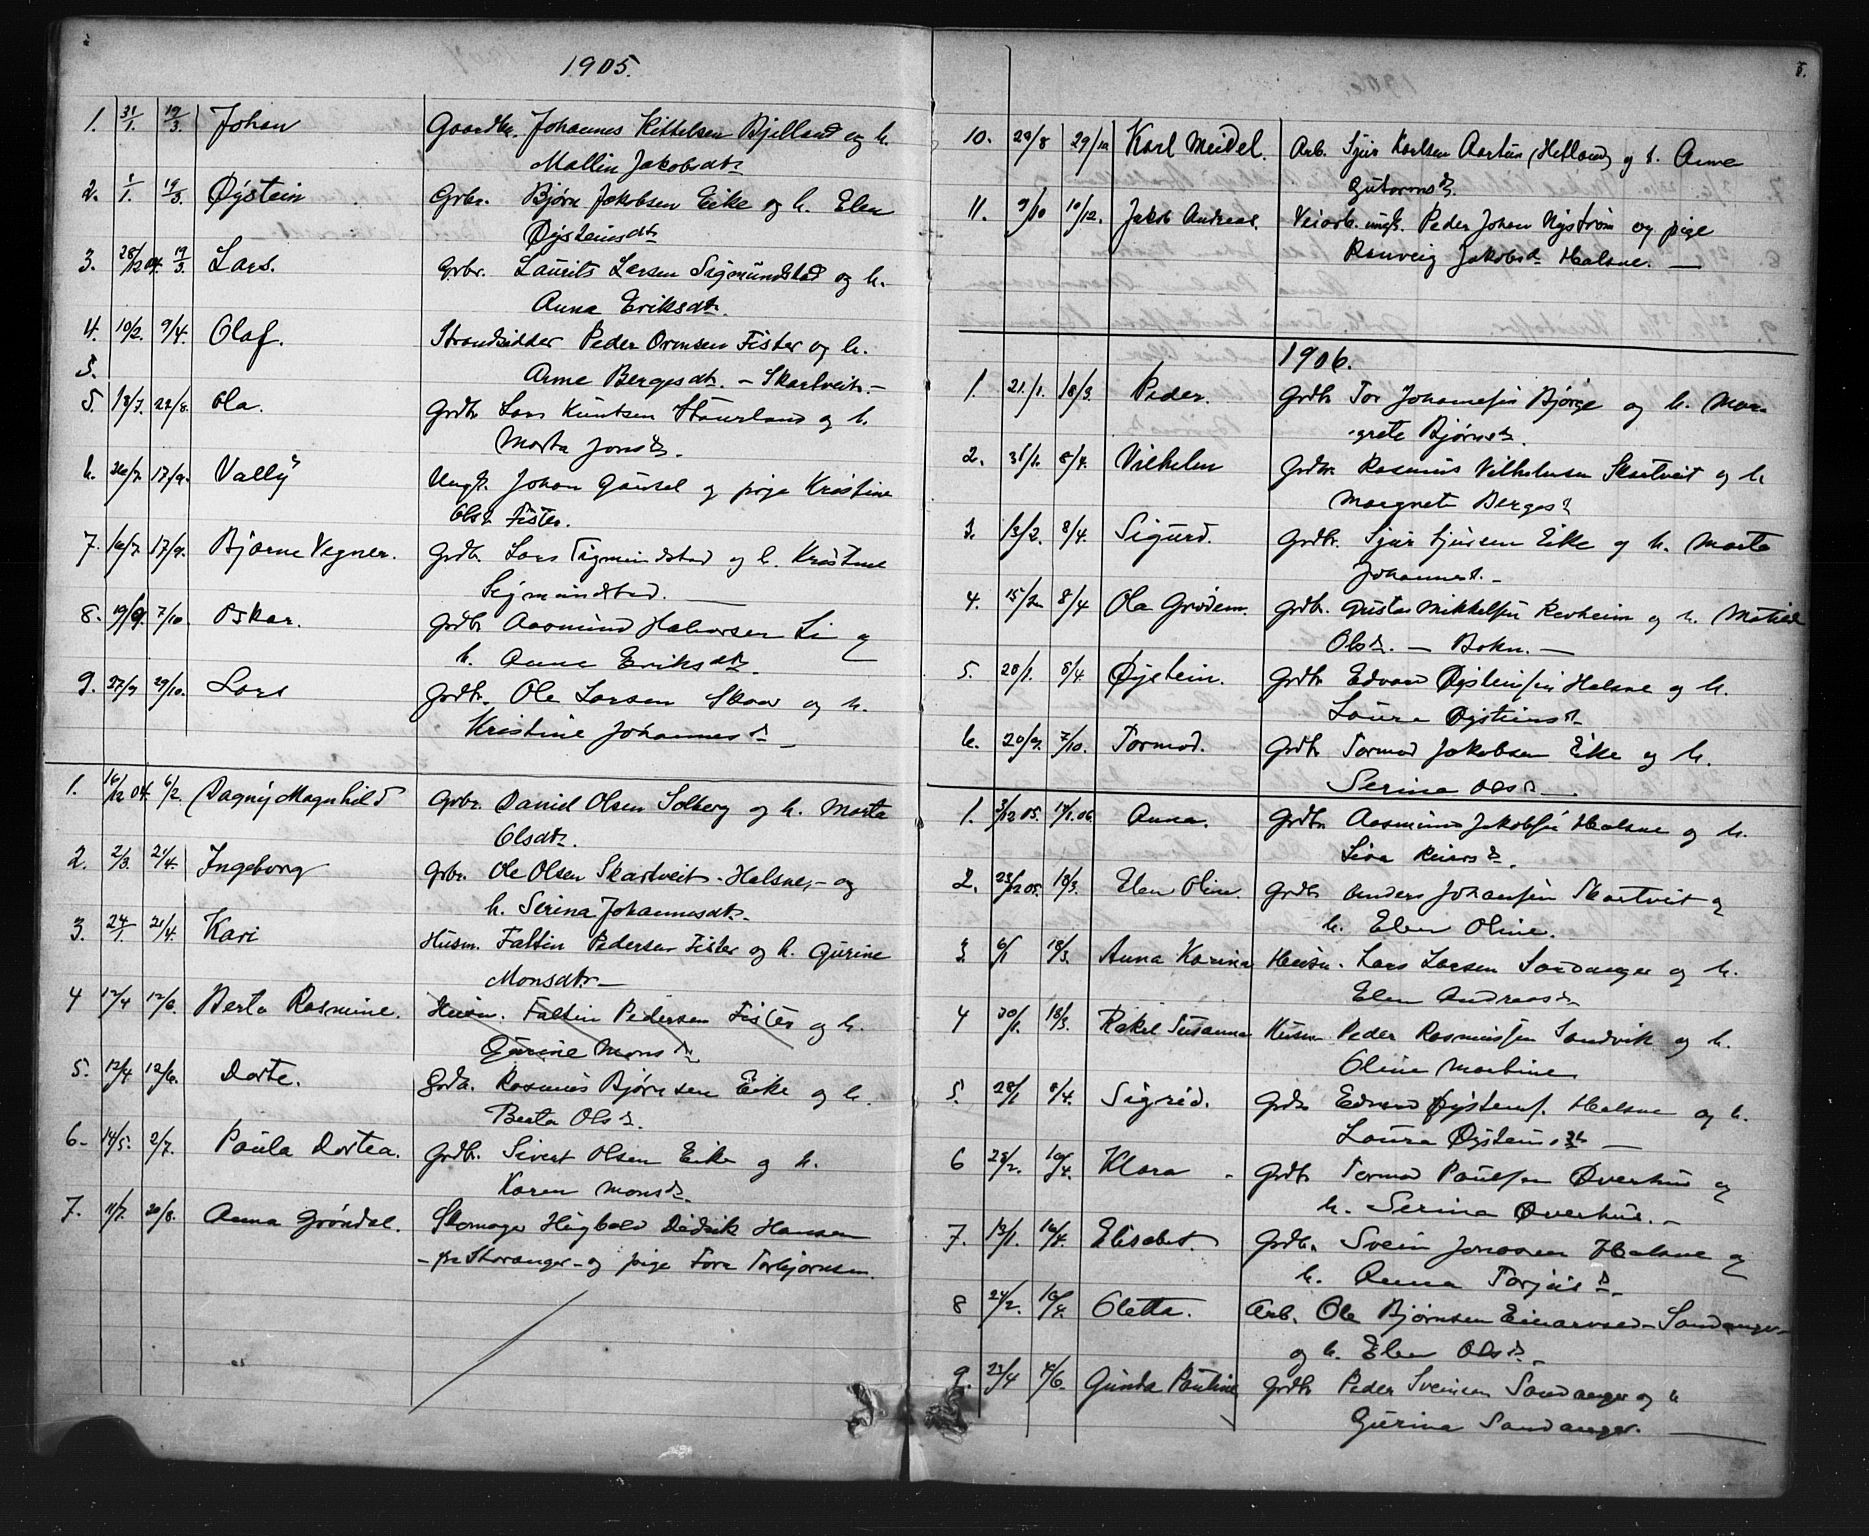 1905.
1. 31/1. 19/3. Johan Gaardbr. Johannes Kittelsen Bjelland og h.
Mallin Jakobsdtr
2. 8/1. 19/3. Øystein Grbr. Bjørn Jakobsen Eike og h. Elen
Øysteinsdtr
3. 28/12 04. 19/3. Lars. Grbr. Laurits Larsen Sigmundstad og h.
Anna Eriksdtr.
4. 10/2. 9/4. Olaf. Strandsidder Peder Ormsen Fister og h.
5. Anne Bergesdtr. - Skartveit -
5. 13/7. 22/8. Ola. Grdbr Lars Knutsen Staurland og h.
Marta Jonsd.
6. 26/7. 17/9. Vally Ungk. Johan Gausel og pige Kristine
Olsd. Fister.
7. 16/7. 17/9. Bjarne Vegner. Grdb. Lars Sigmundstad og h. Kristine
Sigmundstad.
8. 19/9. 7/10. Oskar. Grdbr Aasmund Halvorsen Li og
h. Anne Eriksdtr.
9. 27/9 29/10. Lars Grdbr. Ole Larsen Skaar og h.
Kristine Johannesd. -
1. 16/12 04. 6/2. Dagny Magnhild Grbr. David Olsen Solberg og h. Marta
Olsdtr.
2. 2/3. 21/4. Ingeborg Grbr. Ole Olsen Skartveit - Halsne, - og
h. Serina Johannesdtr.
3. 24/1. 21/4. Kari Husm. Faltin Pedersen Fister og h. Gurine
Monsdtr. -
4 12/4 12/6. Berta Rasmine. Husm. Faltin Pedersen Fister og h.
Gurine Monsd.
5. 12/4 12/6. Dorte. Grdb. Rasmus Bjørnsen Eike og h.
Berta Olsd.
6. 14/5. 2/7. Paula Dortea. Grdbr. Sivert Olsen Eike og h.
Karen Monsd.
7. 11/7. 20/8. Anna Grøndal. Skomager Hugbald Didrik Hansen
- fra Storanger - og pige Tora Torbjørnsen.
10. 29/8 29/10 Karl Meidel. Arb. Sjur Karlsen Aartun (Hetland) og h. Anne
Gutormsd.
11. 9/10 10/12. Jakob Andreas. Veiarb. ungk. Peder Johan Nystrøm og pige
Ranveig Jakobsd. Halsne. -
1906.
1. 21./1. 18/3. Peder. Grdbr Tor Johannesen Bjørge og h. Mar-
grete Bjørnsd.
2. 31/1. 8/4. Vilhelm Grdbr. Rasmus Vilhelmsen Skartveit og h
Margrete Bergesd
3. 13/2. 8/4. Sigurd. Grdbr. Sjur Sjursen Eike og h. Marta
Johannesd. -
4. 15/2. 8/4 Ola Grødem. Grdbr. Gustav Mikkelsen Revheim og h. Matilde
Olsd. - Bokn. -
5. 28/1. 8/4 Øystein. Grdbr Edvard Øysteinsen Halsne og h.
Laura Øysteinsd.
6. 20/9. 7/10. Tormod. Grdbr Tormod Jakobsen Eike og h.
Serine Olsd. -
1. 3/12 05. 14/1.06. Anna. Grdbr Aasmund Jakobsen Halsne og h.
Siva Reiarsd.
2. 23/12 05. 18/3. Elen Oline. Grdbr Anders Johansen Skartveit og
h. Elen Oline.
3. 6/1 18/3. Anna Karina Husm. Lars Larsen Sandanger og h.
Elen Andreasd.
4 30/1. 18/3. Rakel Susanna Husm Peder Rasmussen Sandvik og h.
Oline Martine
5. 28/1 8/4. Sigrid. Grdbr Edvard Øysteins. Halsne og h.
Laura Øysteinsd. -
6 25/2. 16/4. Klara - Grdbr Tormod Paulsen Øverhus og
h. Serina Øverhus. -
7. 13/1. 16/4. Elisabet. Grdbr. Svein Jonassen Halsne og
h. Anna Torjusd.
8 24/2. 16/4. Oletta. Arb. Ole Bjørnsen - Sandanger -
og h. Elen Olsd.
9. 23/4 4/6. Gunda Pauline Grdbr Peder Sveinsen Sandanger og h
Gurina Sandanger. -